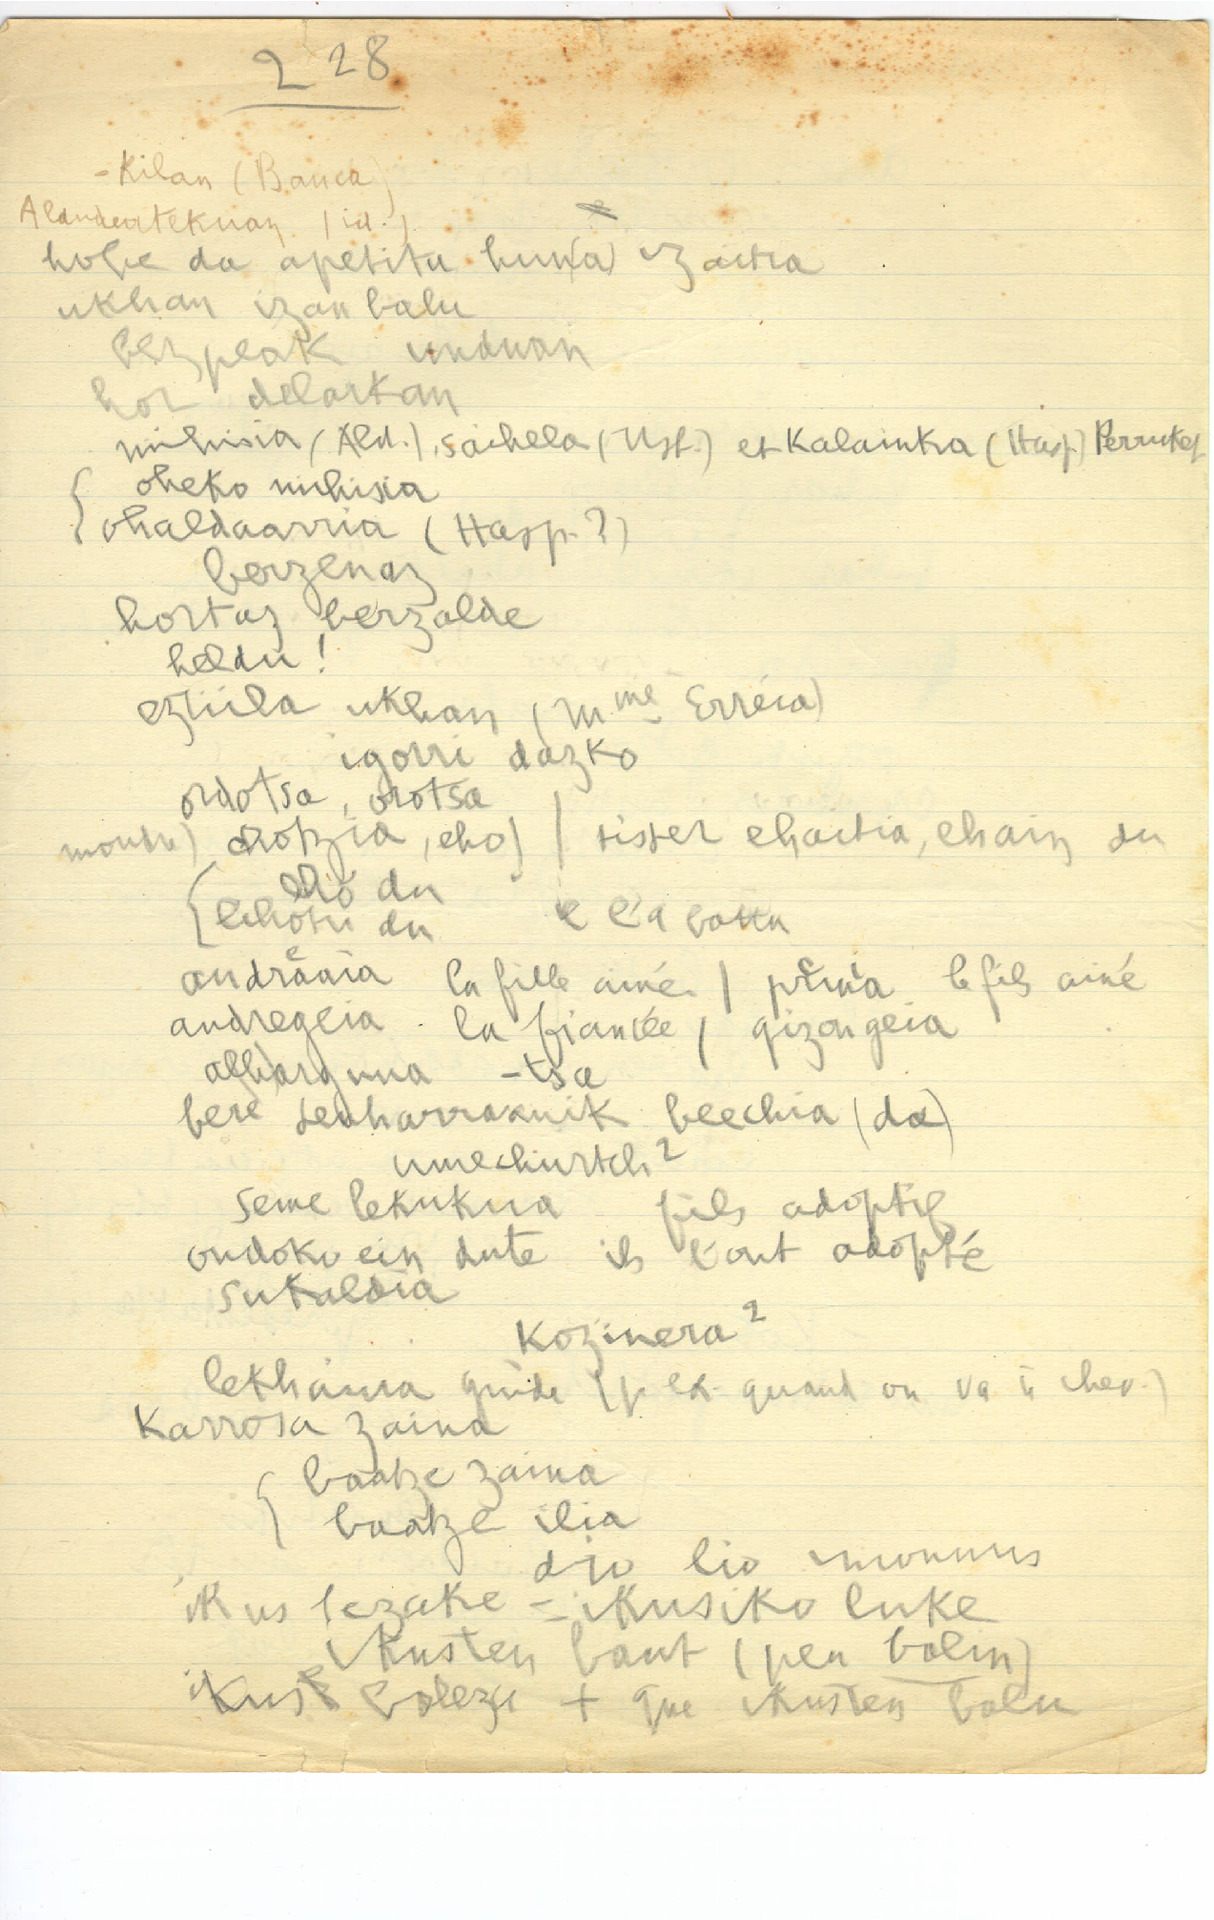 228
-Kilan (Banca)
(id.)
hobe da apetitu hun(a) izaitia
ukhan izan balu
bezperak
hor delarkan
mihisia (Ald.), saihela (Ust.) et Kalamka (Hasp.) Perruket
oheko mihisia
ohaldaarria (Hasp.?)
berzenaz
hortaz berzalde
heldu!
eztiila ukhan (Mme Erréca)
igorri dazko
ordotsa, orotsa
moudre) , eho) / tister ehaitia, ehain du
eho du
lehotu du l l'a battu
andrena la fille ainée / prima le fils ainé
andregeia la fiancée / gizongeia
alharguna -tsa
bere senharraenik beechia (da)
umechurtch²
seme lekukua fils adoptif
ondoko ein dute ils l'ont adopté
sukaldia
Kozinera²
lekhaina guide (p ex. quand on va à chev.)
Karrosa zaina
baatze zaina
baatze ilia
dio lio
ikus lezake = ikusiko luke
ikusten baut (peu balin)
ikus balezu + que ikusten balu